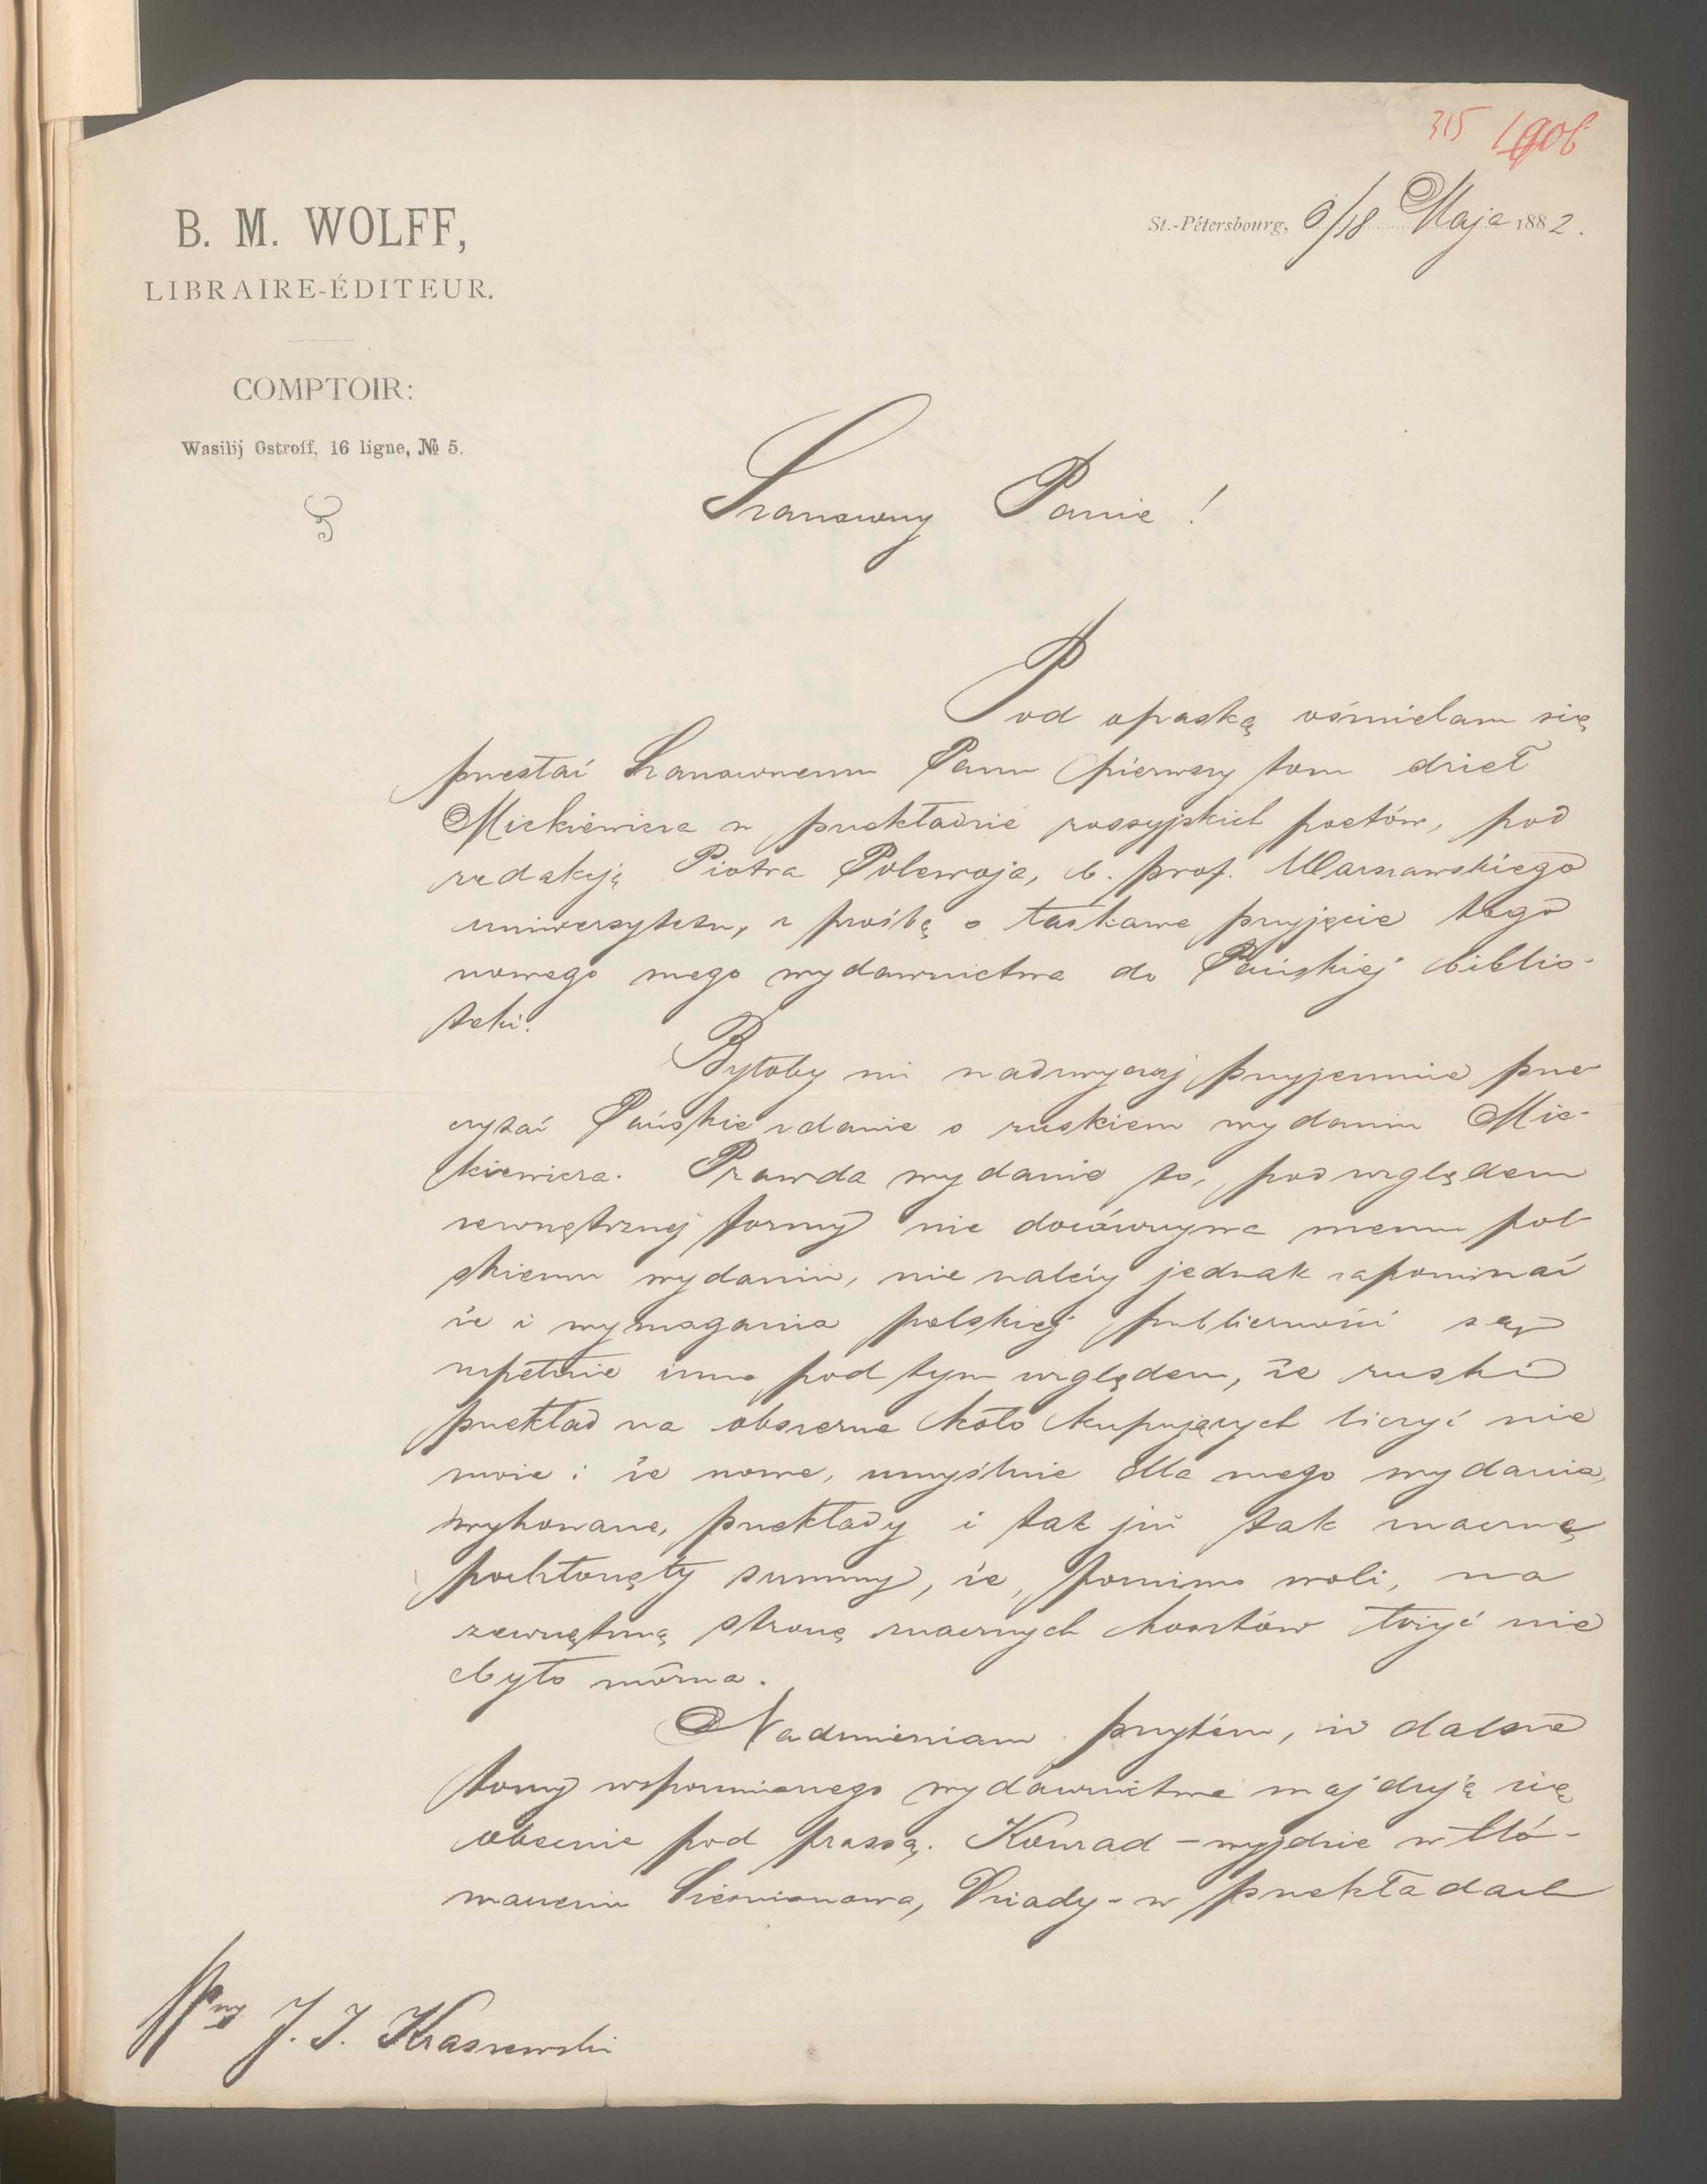 315
B. M. WOLFF,
LIBRAIRE-ÉDITEUR.
COMPTOIR:
Wasilij Ostroff, 16 ligne, № 5.
St.-Pétersbourg, 6/18 Maja 1882.
Szanowny Panie!
Pod opaską ośmielam się
przesłać Szanownemu Panu pierwszy tom dzieł
Mickiewicza w przekładzie rossyjskich poetów, pod
redakcją Piotra Polewoja, b. prof. Warszawskiego
uniwersytetu, z prośbą o łaskawe przyjęcie tego
nowego mego wydawnictwa do Pańskiej biblio-
teki.
Byłoby mi nadzwyczaj przyjemnie prze-
czytać Pańskie zdanie o ruskiem wydaniu Mic-
kiewicza. Prawda wydanie to, pod względem
zewnętrznej formy nie dorównywa memu pol-
skiemu wydaniu, nie należy jednak zapominać
że i wymagania polskiej publiczności są
zupełnie inne pod tym względem, że ruski
przekład na obszerne koło kupujących liczyć nie
może i że nowe, umyślnie dla mego wydania,
wykonane, przekłady i tak już tak znaczne
pochłonęły summy, że, pomimo woli, na
zewnętrzną stronę znacznych kosztów łożyć nie
było można.
Nadmieniam przytém, iż dalsze
tomy wspomnianego wydawnictwa znajdują się
obecnie pod prassą. Konrad - wyjdzie w tłó-
maczeniu Siemionowa, Dziady - w przekładach
Wny J. I. Kraszewski